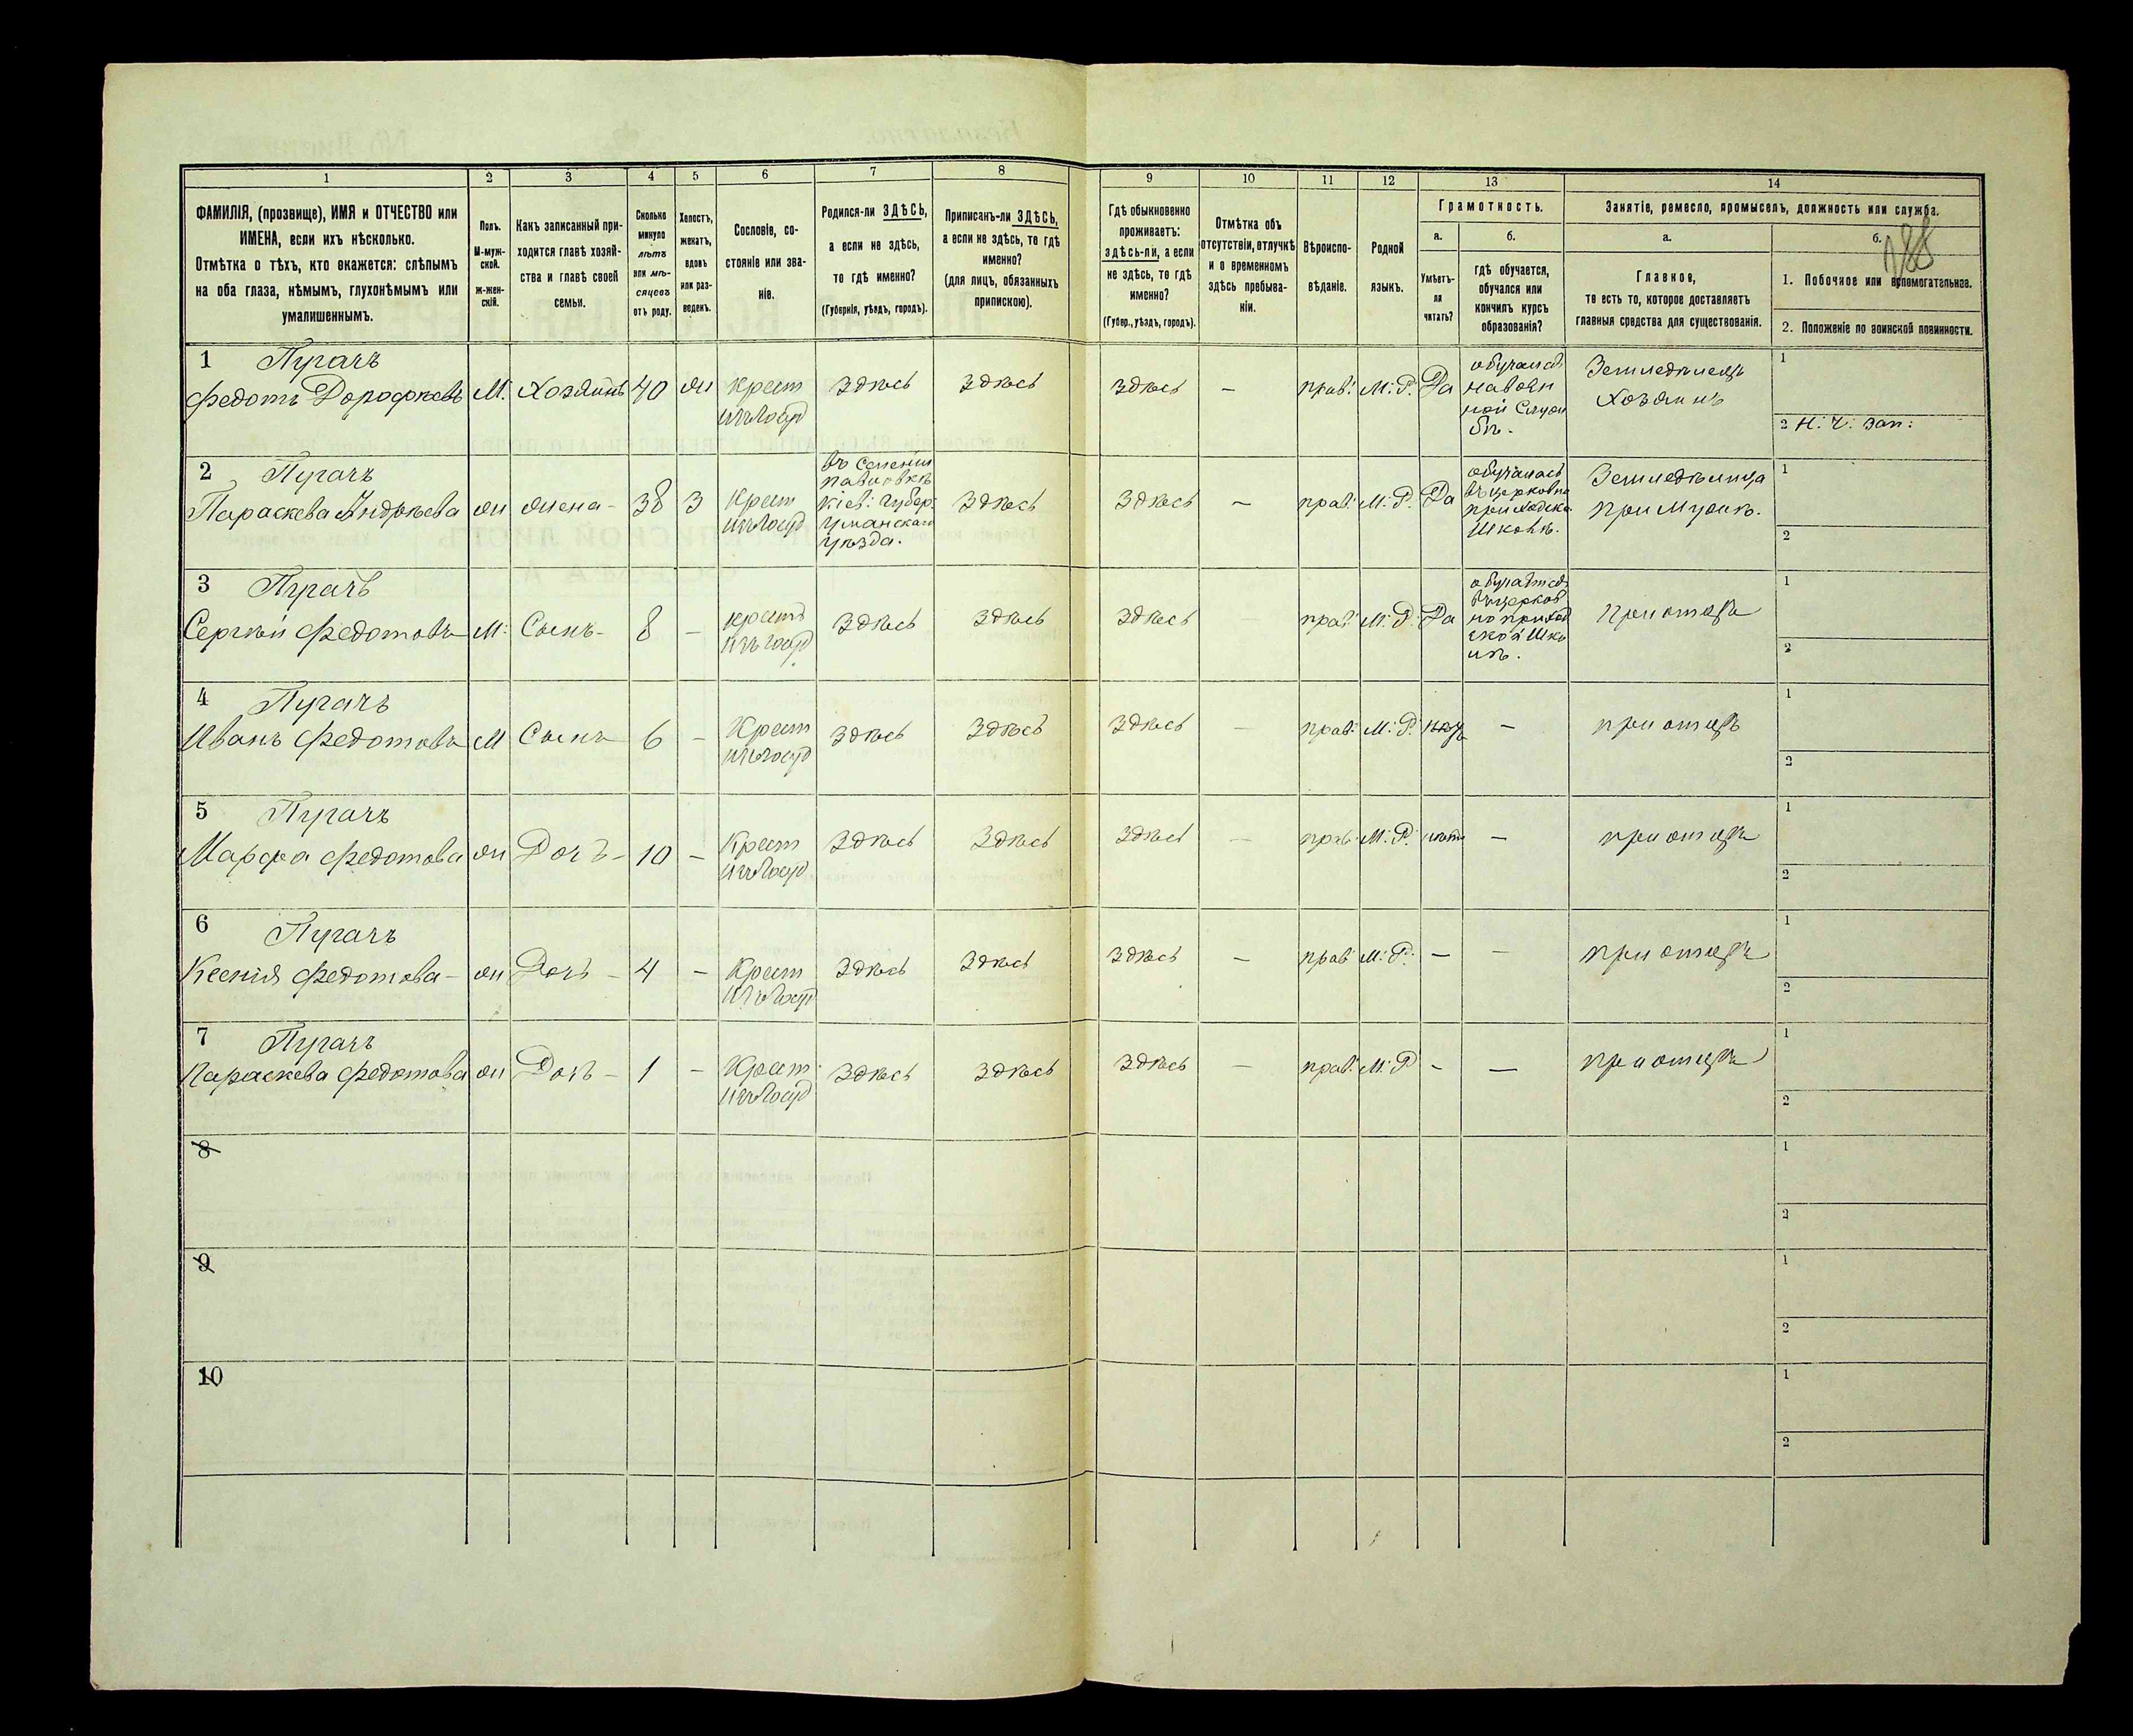 1 2 3 4 5 6 7 8 9 10 11 12 13 14
ФАМИЛІЯ, (прозвище), ИМЯ и ОТЧЕСТВО или
ИМЕНА, если ихъ нѣсколько.
Отмѣтка о тѣхъ, кто окажется: слѣпымъ
на оба глаза, нѣмымъ, глухонѣмымъ или
умалишеннымъ.
Полъ.
М-муж-
ской.
Ж-жен-
скій.
Какъ записанный при-
ходится главѣ хозяй-
ства и главѣ своей
семьи.
Сколько
минуло
лѣтъ
или мѣ-
сяцевъ
отъ роду.
Холостъ,
женатъ,
вдовъ
или раз-
веденъ.
Сословіе, со-
стояніе или зва-
ніе.
Родился-ли ЗДѢСЬ,
а если не здѣсь,
то гдѣ именно?
(Губернія, уѣздъ, городъ).
Приписанъ-ли ЗДѢСЬ,
а если не здѣсь, то гдѣ
именно?
(для лицъ, обязанныхъ
припискою).
Гдѣ обыкновенно
проживаетъ:
здѣсь-ли, а если
не здѣсь, то гдѣ
именно?
(Губер., уѣздъ, городъ).
Отмѣтка объ
отсутствіи, отлучкѣ
и о временномъ
здѣсь пребыва-
ніи.
Вѣроиспо-
вѣданіе.
Родной
языкъ.
Грамотность.
а.
Умѣетъ-
ли
читать?
б.
гдѣ обучается,
обучался или
кончилъ курсъ
образованія?
Занятіе, ремесло, промыселъ, должность или служба.
а.
Главное,
то есть то, которое доставляетъ
главныя средства для существованія.
б.
188
1. Побочное или вспомогательное.
2. Положеніе по воинской повинности.
1 Пугачъ
Федотъ Дорофѣевъ М. Хозяинъ 40 Ж Крест
изъ Госуд
здѣсь здѣсь здѣсь — прав: М: Р. Да
обучался
на воен
ной Служ
бѣ.
Земледѣлецъ
Хозяинъ
1
2 Н. Ч. зап:
2 Пугачъ
Параскева Андрѣева Ж Жена - 38 З Крест
изъ Госуд
въ Селеніи
Павловкѣ
Кіев: Губер:
Уманскаго
Уѣзда.
здѣсь здѣсь — прав: М: Р. Да
обучалась
въ церковно
приходско
Школѣ.
Земледѣлица
при Мужѣ.
1
2
3 Пугачъ
Сергѣй Федотовъ М: Сынъ - 8 — крест
изъ Госуд
здѣсь здѣсь здѣсь — прав: М: Р: Да
обучается
въ церков
но приход
ской Шко
лѣ.
при отцѣ
1
2
4 Пугачъ
Иванъ Федотовъ М Сынъ 6 — Крест
изъ Госуд
здѣсь здѣсь здѣсь — прав: М: Р. — при отцѣ
1
2
5 Пугачъ
Марфа Федотова Ж Дочь - 10 — Крест
изъ Госуд
здѣсь здѣсь здѣсь — прав: М: Р. нѣтъ — при отцѣ
1
2
6 Пугачъ
Ксенія Федотова - Ж Дочь - 4 — Крест
изъ Госуд
здѣсь здѣсь здѣсь — прав М: Р: — — при отцѣ
1
2
7 Пугачъ
Параскева Федотова Ж Дочь - 1 — Крест
изъ Госуд
здѣсь здѣсь здѣсь — прав: М: Р — — при отцѣ
1
2
8
1
2
9
1
2
10
1
2